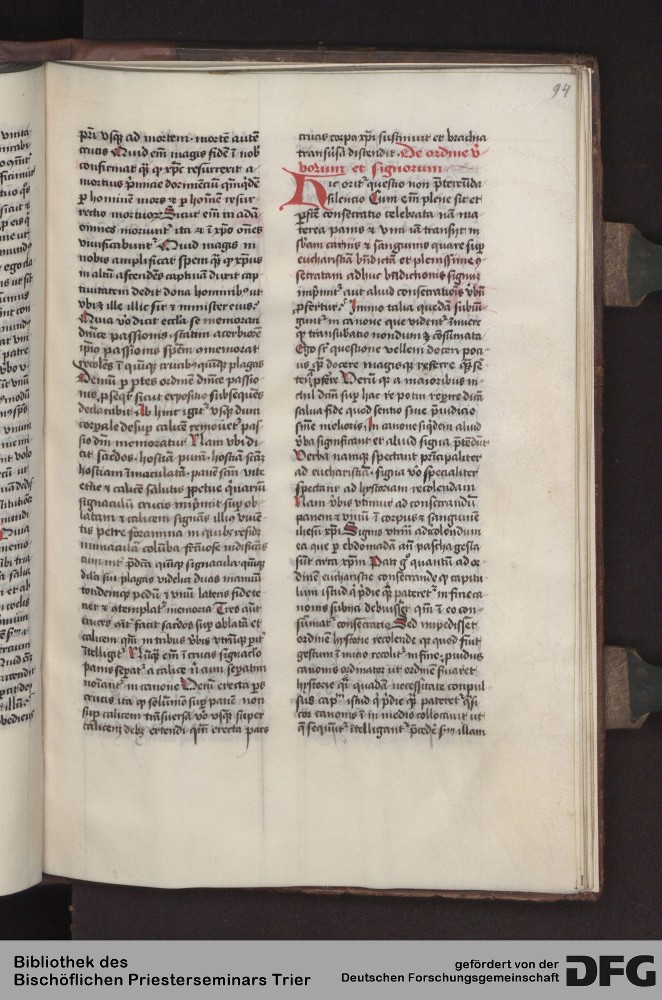 94
pri usq; ad mortem · mortē autē
crucis Quid em̄ magis fidē ī nob
confirmat q̄ꝫ q̄ xp̄c resurrexit a
mortuis p̄mitie dormiēciū
ꝑ hominem mors ⁊ ꝑ hoīem resur
rectio mortuoꝝ Sicut em̄ in adā
omnes moriunt̄ ita ⁊ ī xp̄o om̄es
vivificabunt̄ Quid magis in
nobis amplificat spem q̄ꝫ q̄ xp̄us
in altū ascendēs captivā duxit cap
tivitatem dedit dona hominibꝰ ut
ubi ille illic sit ⁊ minister eius
Quia vō dicit eccl̄ia se memorari
dn̄ice passionis · statim acerbiorē
passionis spēm ↄmemorat
ī quinqꝫ crucibꝰ quinqꝫ plagas
Demū ꝑ ꝑtes ordinē dn̄ice passio
nis ꝓseqt̄ sicut expositio subseqn̄s
declarabit Ab hinc igit̄ usqꝫ dum
corpale desuꝑ calicē removet̄ pas
sio dn̄i memoratur Nam ubi di
cit sacdos · hostiā purā · hostiā sc̄am
hostiam īmaculatā · panē sc̄m vite
et̄ne ⁊ calicē salutis ꝑpetue
signaculū crucis imp̄mit suꝑ ob
latam ⁊ calicem signās illiꝰ
tis petre foramina in quibꝫ
columba nidificās
p̄dc̄a quinqꝫ signacula quinqꝫ
dilc̄i sui plagas videlicꝫ duas manuū
totidemqꝫ pedū ⁊ unū lateris fide te
net ⁊ ↄtemplat̄ memoria Tres aūt
cruces facit sacdos suꝑ oblatā et
calicem qm̄ in tribus ūbis utrūqꝫ
ītelligit̄ ī crucis signaclo
panis sepat̄ a calice
noīant̄ in canone Verū erecta
crucis ita qꝫ solūmō suꝑ panē non
suꝑ calicem trāsversa vō usqꝫ super
calicem debꝫ extendi qm̄ erecta pars
crucis corpꝰ xp̄i sustinuit et brachia
transūsa distendit · De ordine ū
borum et signorum
Hic orit̄ questio non p̄tereūda
silencio Cum em̄ plene sit et
ꝑfcē consecratio celebrata nā ma
teria panis ⁊ vini iā transijt in
sb̄am carnis ⁊ sanguinis quare suꝑ
eucharistiā bn̄dictā et plenissime ↄ
secratam adhuc bn̄dictionis signū
imp̄mit̄ aut aliud consecratiōis ūbū
ꝓfertur · Immo talia quedā subiū
gunt̄ in canone que vident̄ īnuere
qꝫ transubātio nondum ē ↄsūmata
Ego sꝑ questione vellem doceri poci
us qꝫ docere magisqꝫ referre
Verū qꝫ a maioribus ni
chil dcm̄ suꝑ hac re potui reꝑire dicā
salva fide quod sentio sine p̄iudicio
sn̄ie melioris In canone siq̄dem aliud
ūba significant et aliud signa p̄tedūt
Verba namqꝫ spectant principaliter
ad eucharistiā · signa vō specialiter
spectant ad hystoriam recolendam
Nam ūbis utimur ad consecrandū
panem ⁊ vinū ī corpus ⁊ sanguinem
ihesu xp̄i Signis utim̄ ad recolendum
ea que ꝑ ebdomadā an̄ pascha gesta
sūt circa xp̄m Patꝫ gͦ quantū ad or
dinem eucharistie consecrande qꝫ capitu
lum istud q̄ p̄die q̄ꝫ pateret̄ in fine ca
nonis subici debuisset qm̄ ī eo con
sūmat̄ consecratio Sed impedisset
ordinē hystorie recolende qꝫ quod fuit
gestum ī inicio recolit̄ in fine · pvidus
canonis ordinator ut ordinē s̄uaret
hystorie q̄si quadā necessitate conpul
sus cap̄lm istud q̄ p̄die q̄ꝫ pateret̄ q̄si
cor canonis ī in medio collocavit ut
q̄ sequūt̄ ītelligant̄ p̄cedē sm̄ illam
Bibliothek des
Bischöflichen Priesterseminars Trier
gefördert von der
Deutschen Forschungsgemeinschaft
DFG